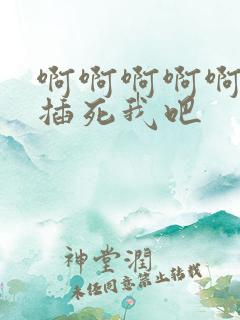 啊啊啊啊啊
插死我吧
神堂潤
未经同意禁止转载